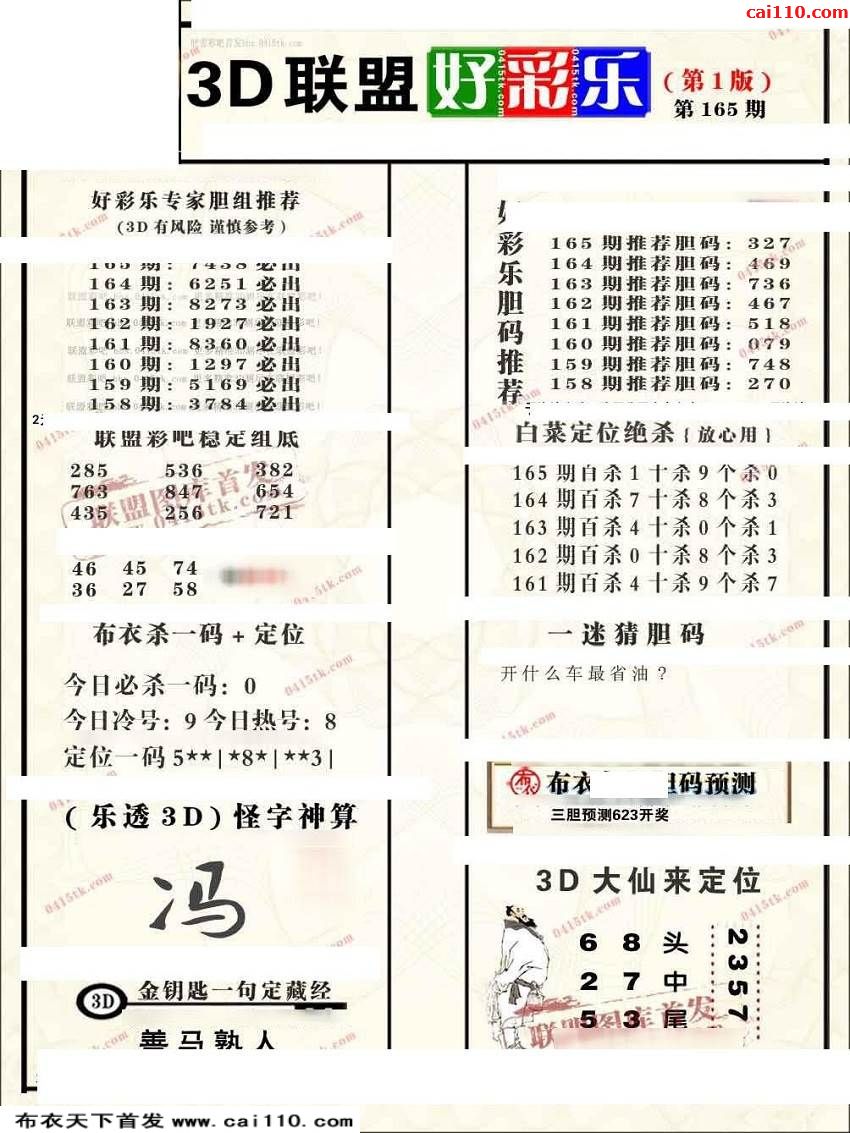 cai110.com
3D联盟好彩乐
(第1版)
第165期
好彩乐专家胆组推荐
(3D有风险 谨慎参考)
165期: 7438必出
164期: 6251必出
163期: 8273必出
162期: 1927必出
161期: 8360必出
160期: 1297必出
159期: 5169必出
158期: 3784必出
联盟彩吧稳定组底
285 536 382
763 847 654
435 256 721
46 45 74
36 27 58
布衣杀一码+定位
今日必杀一码: 0
今日冷号: 9 今日热号: 8
定位一码 5**|*8*|**3|
(乐透3D)怪字神算
冯
3D 金钥匙一句定藏经
善马熟人
好彩乐胆码推荐
165期推荐胆码: 327
164期推荐胆码: 469
163期推荐胆码: 736
162期推荐胆码: 467
161期推荐胆码: 518
160期推荐胆码: 079
159期推荐胆码: 748
158期推荐胆码: 270
白菜定位绝杀{放心用}
165期百杀1十杀9个杀0
164期百杀7十杀8个杀3
163期百杀4十杀0个杀1
162期百杀0十杀8个杀3
161期百杀4十杀9个杀7
一迷猜胆码
开什么车最省油?
布衣 胆码预测
三胆预测623开奖
3D大仙来定位
6 8 头
2 7 中
5 3 尾
2357
布衣天下首发 www.cai110.com